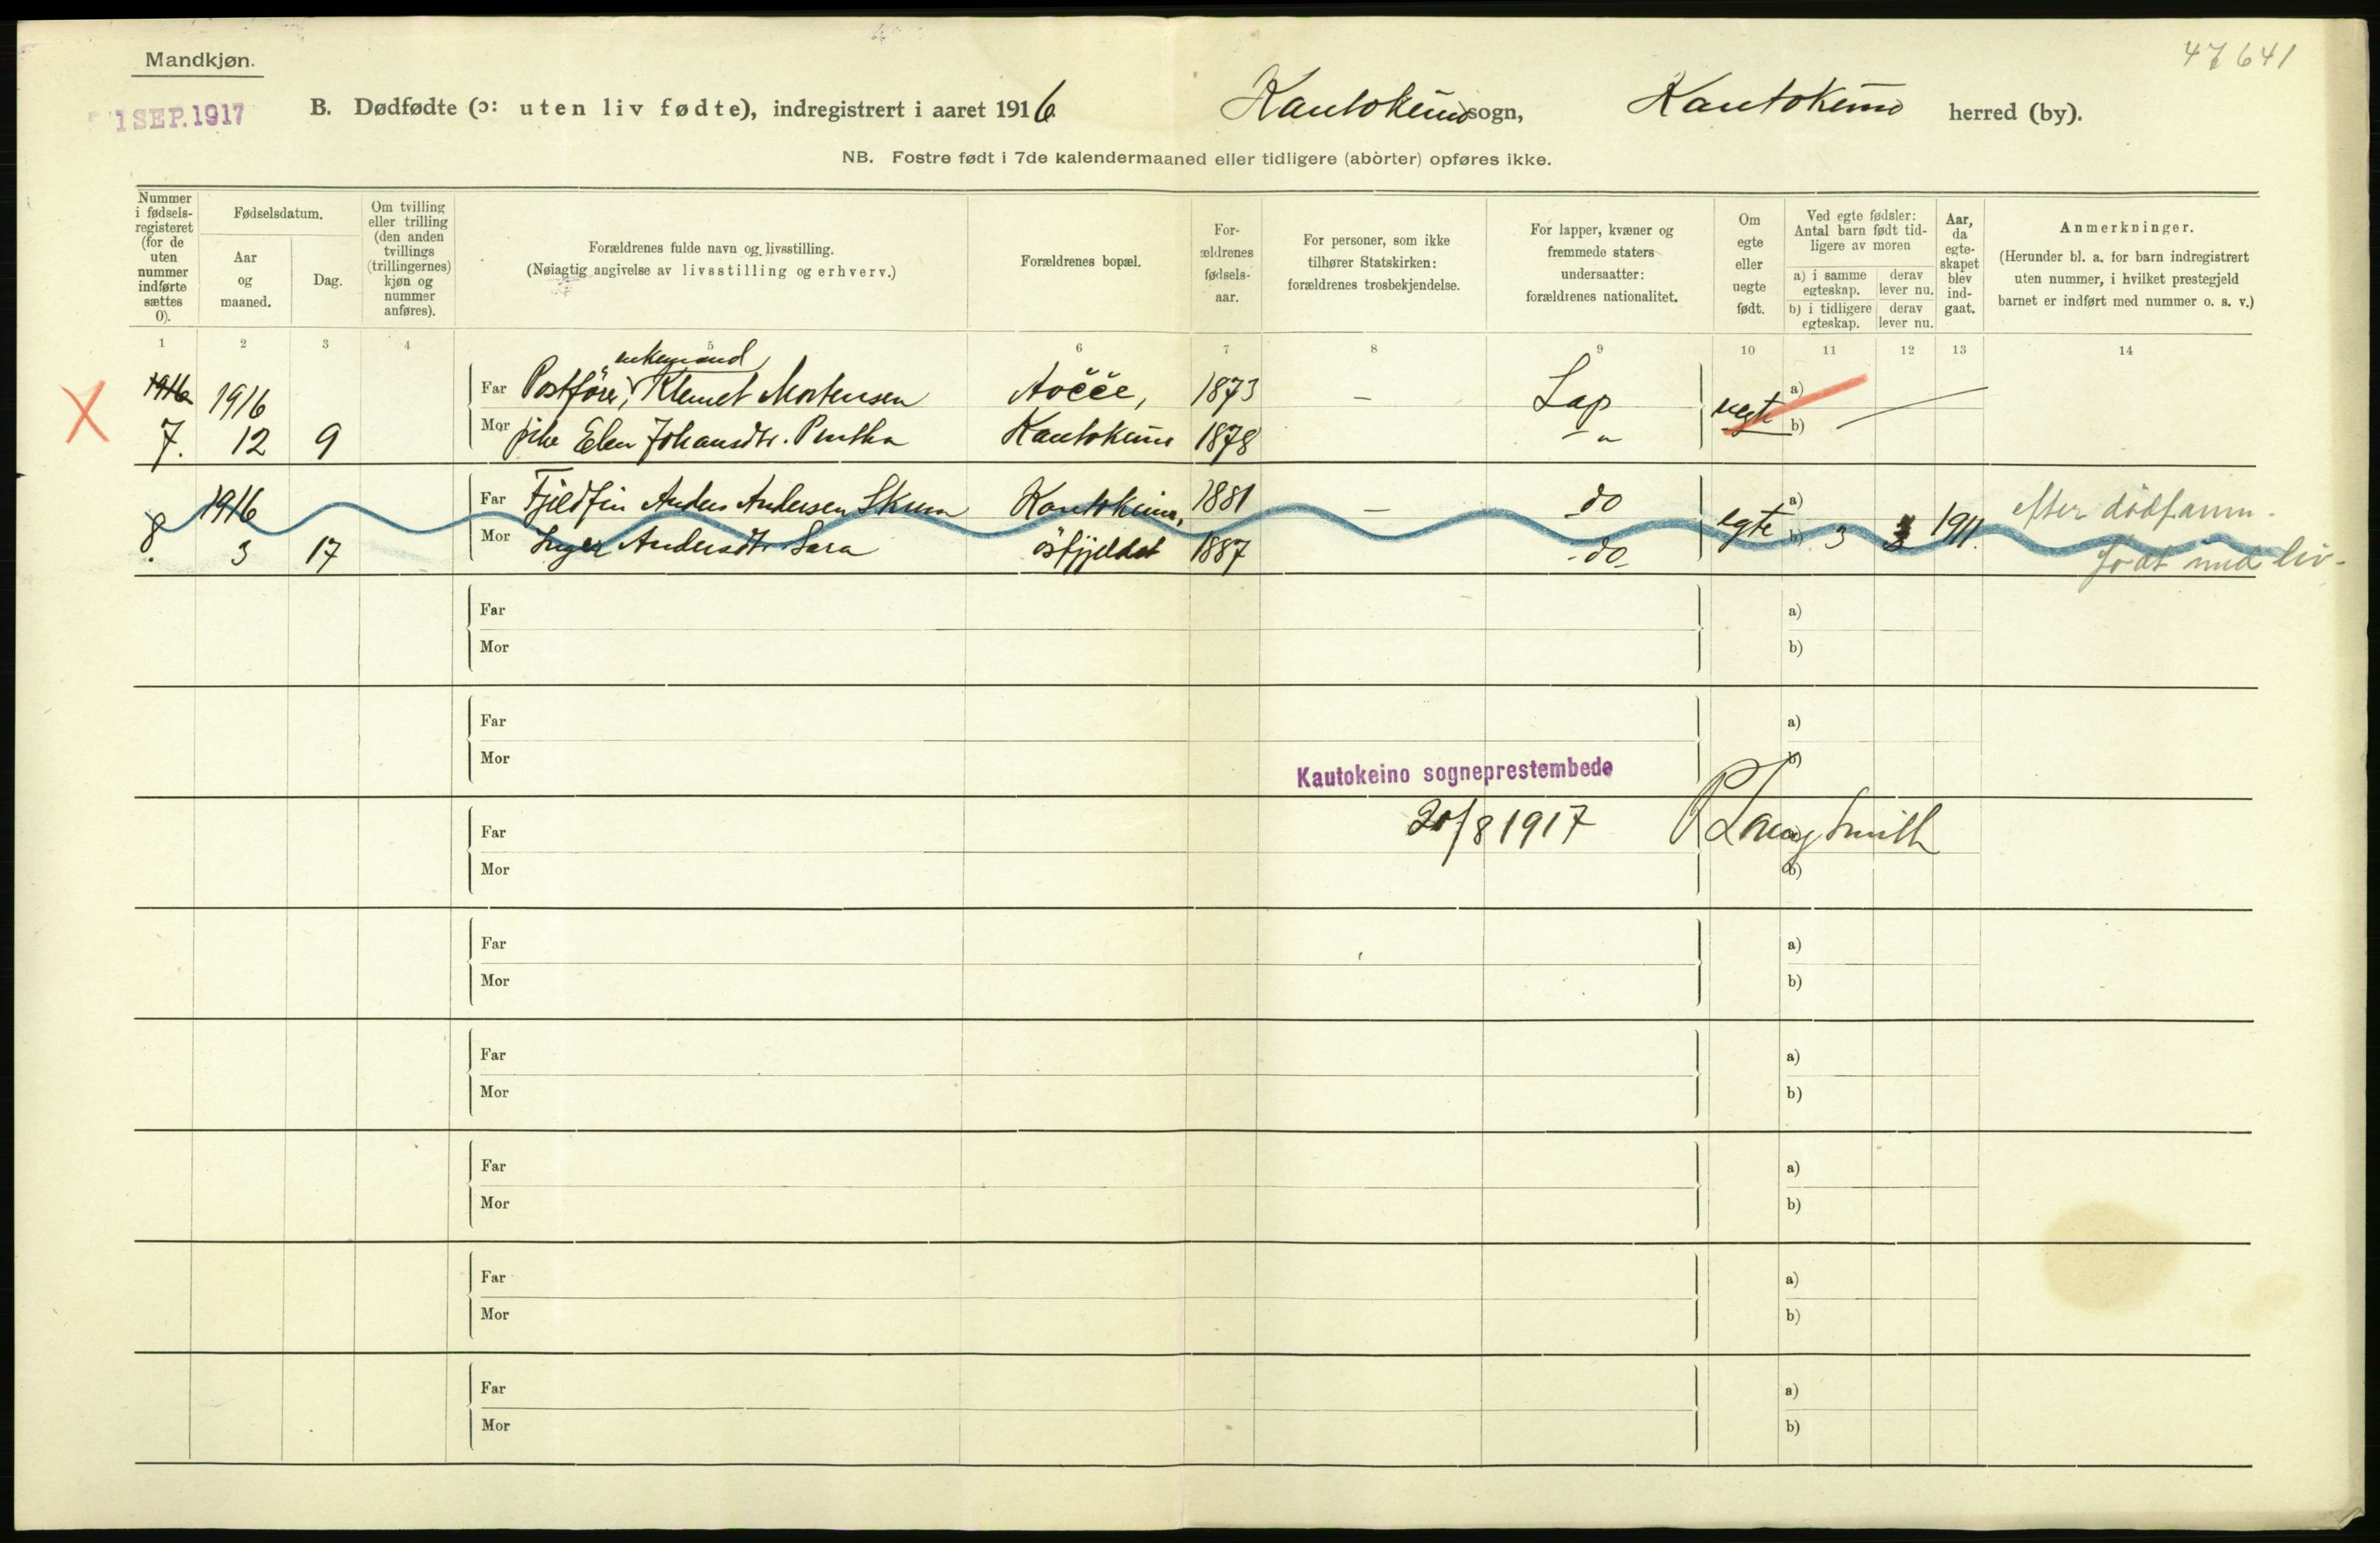 Mandkjøn.
47641
1 SEP. 1917
B. Dødfødte (ɔ: uten liv fødte), indregistrert i aaret 1916 Kautokeino sogn, Kautokeino herred (by).
NB. Fostre født i 7de kalendermaaned eller tidligere (aborter) opføres ikke.
Nummer i fødselsregisteret (for de uten nummer indførte sættes 0).
Fødselsdatum.
Aar og maaned.
Dag.
Om tvilling eller trilling (den anden tvillings (trillingernes) kjøn og nummer anføres).
Forældrenes fulde navn og livsstilling.
(Nøiagtig angivelse av livsstilling og erhverv.)
Forældrenes bopæl.
Forældrenes fødselsaar.
For personer, som ikke tilhører Statskirken: forældrenes trosbekjendelse.
For lapper, kvæner og fremmede staters undersaatter: forældrenes nationalitet.
Om egte eller uegte født.
Ved egte fødsler: Antal barn født tidligere av moren
a) i samme egteskap. derav lever nu.
b) i tidligere egteskap. derav lever nu.
Aar, da egteskapet blev indgaat.
Anmerkninger.
(Herunder bl. a. for barn indregistrert uten nummer, i hvilket prestegjeld barnet er indført med nummer o. s. v.)
1 2 3 4 5 6 7 8 9 10 11 12 13 14
enkemand
1916 1916 Far Postfører, Klemet Mortensen Avčče, 1873 — Lap uegte a)
7. 12 9 Mor pike Elen Johansdtr. Pentha Kautokeino 1878 - " b)
8. 1916 Far Fjeldfin Anders Andersen Skum Kautokeino, 1881 — do egte a) efter dødsanm.
3 17 Mor Inger Andersdtr Sara østfjeldet 1887 - do - b) 3 3 1911. født med liv -
Far a)
Mor b)
Far a)
Mor b)
Kautokeino sogneprestembede
20/8 1917 P Lang Smith
Far
Mor b)
Far a)
Mor b)
Far a)
Mor b)
Far a)
Mor b)
Far a)
Mor b)
Far a)
Mor b)